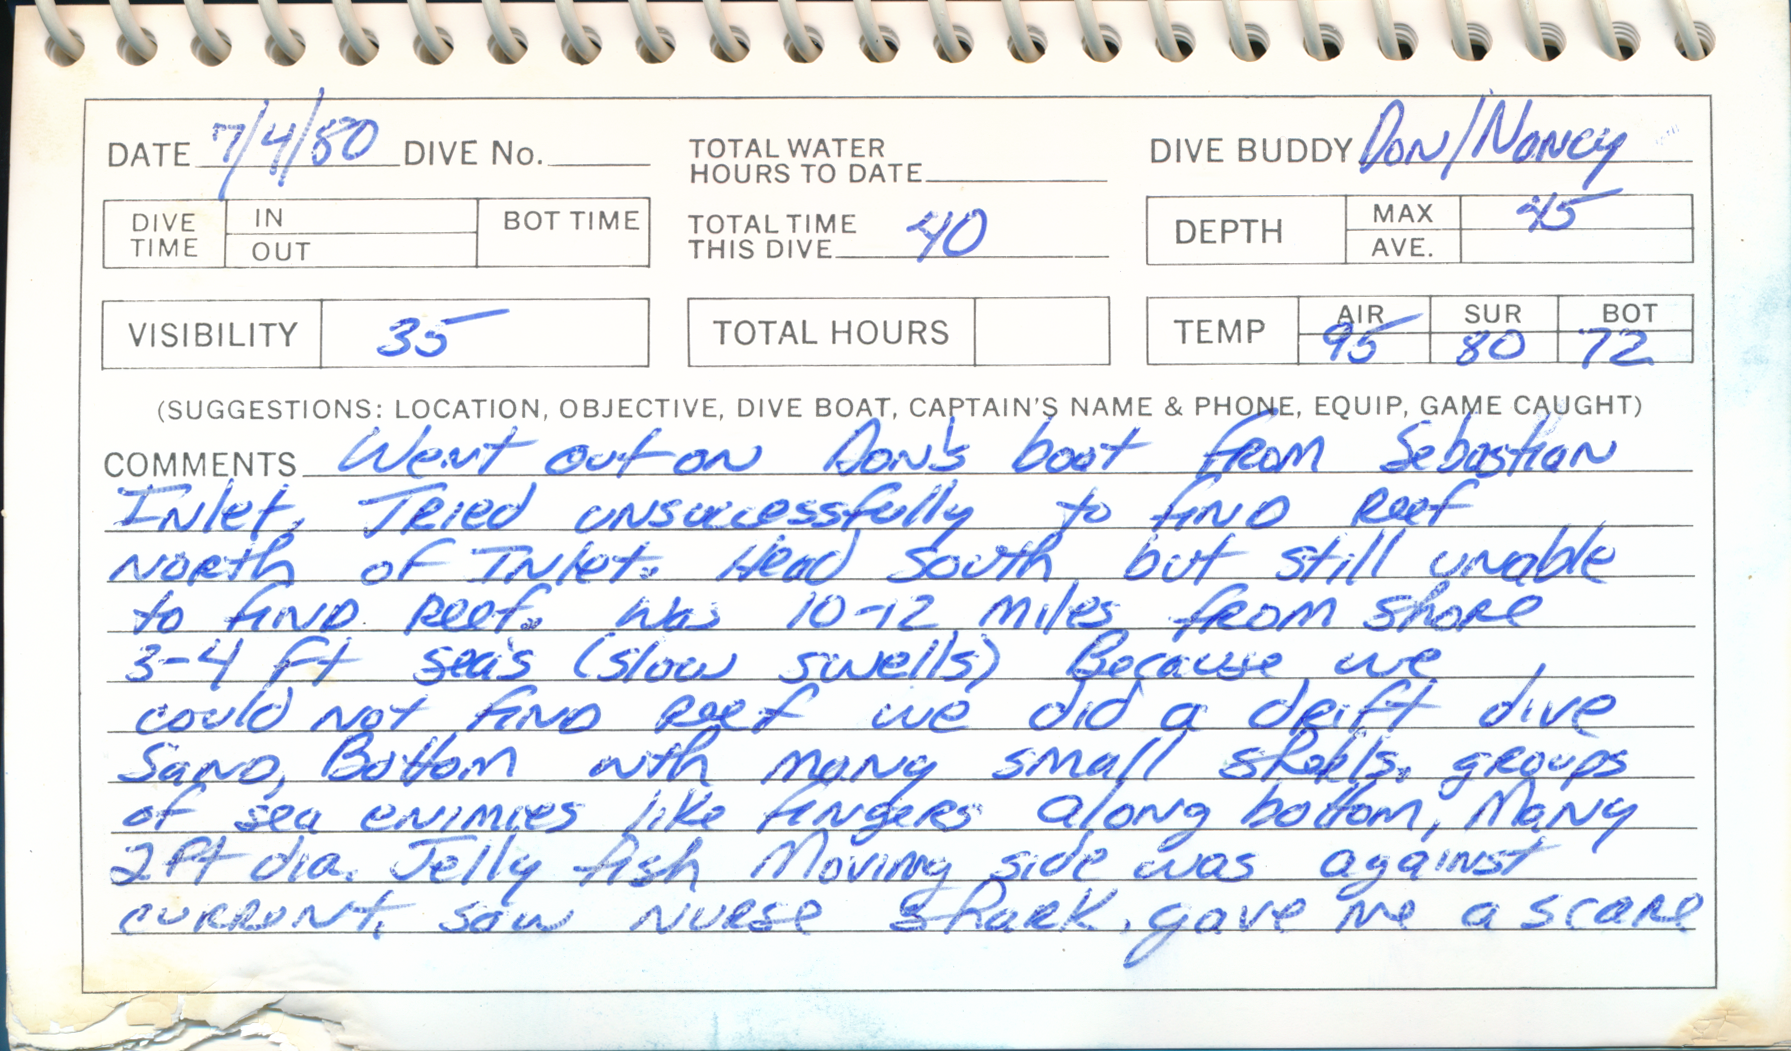 DATE 7/4/80 DIVE No. TOTAL WATER HOURS TO DATE DIVE BUDDY Don/Nancy
DIVE TIME IN OUT BOT TIME TOTAL TIME THIS DIVE 40 DEPTH MAX 45 AVE.
VISIBILITY 35 TOTAL HOURS TEMP AIR 95 SUR 80 BOT 72
(SUGGESTIONS: LOCATION, OBJECTIVE, DIVE BOAT, CAPTAIN'S NAME & PHONE, EQUIP, GAME CAUGHT)
COMMENTS Went out on Don's boat from Sebastian
Inlet, Tried unsuccessfully to find Reef
North of Inlet. Head South but still unable
to find Reef. was 10-12 miles from shore
3-4 ft sea's (slow swells) Because we
could not find Reef we did a drift dive
Sand, Bottom with many small shells. groups
of sea enimies like fingers along bottom, Many
2 ft dia. Jelly fish Moving side was against
current, saw nurse shark, gave me a scare